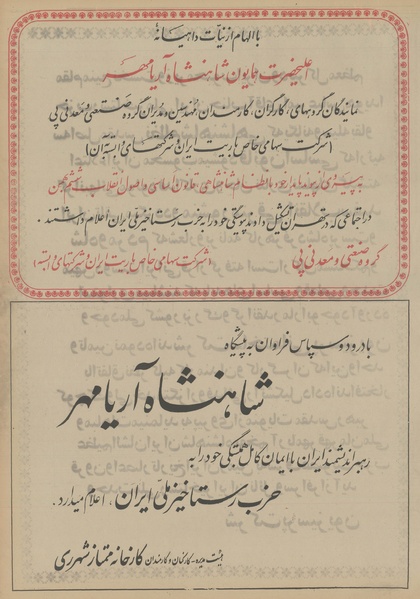 با الهام از نیّات داهیانه
اعلیحضرت همایون شاهنشاه آریامهر
نمایندگان گروههای، کارگران، کارمندان، مهندسین و مدیران گروه صنعتی و معدنی پی
(شرکت سهامی خاص باریت ایران و شرکتهای وابسته آن)
به پیروی از پیوند پایدار خود با نظام شاهنشاهی، قانون اساسی و اصول انقلاب شش بهمن
در اجتماعی که در تهران تشکیل دادند پیوستگی خود را به حزب رستاخیز ملی ایران اعلام داشتند.
گروه صنعتی و معدنی پی (شرکت سهامی خاص باریت ایران و شرکتهای وابسته)
با درود و سپاس فراوان به پیشگاه
شاهنشاه آریامهر
رهبر اندیشمند ایران با ایمان کامل همبستگی خود را به
حزب رستاخیز ملی ایران، اعلام میدارد.
هیئت مدیره - کارکنان و کارمندان کارخانه ممتاز شهرری